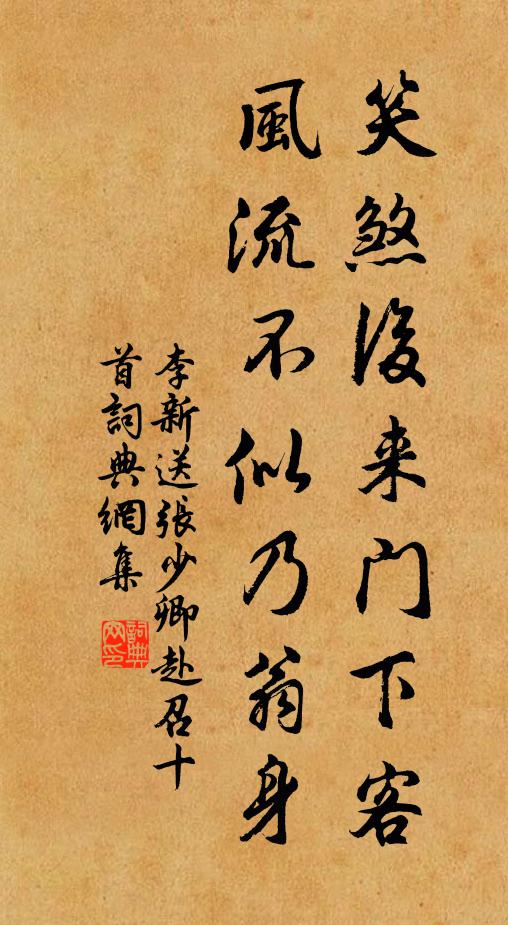 笑煞後来门下客
風流不似乃翁身
李新送張少卿赴召十
首詞典網集
詞典网印